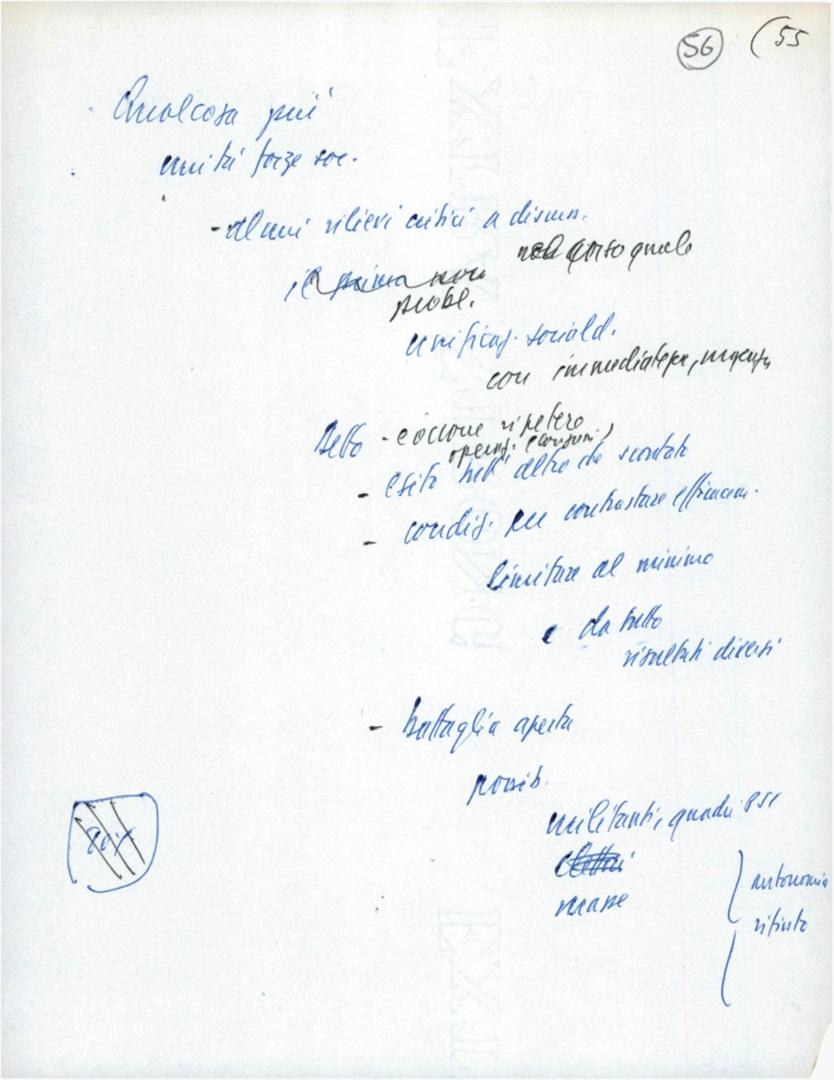 56 (55
Qualcosa più
unità forze soc.
- Alcuni rilievi critici a discuss.
il primo non
nel corso quale
probl.
unificaz. sociald.
con immediatezza, urgenza
Detto - occorre ripetere
operaz. (consum.)
- esito tutt'altro che scontato
- condiz. per contrastare efficacem.
limitare al minimo
e da tutto
risultati diversi
- battaglia aperta
possib.
militanti, quadri PSI
masse
autonomia
rifiuto